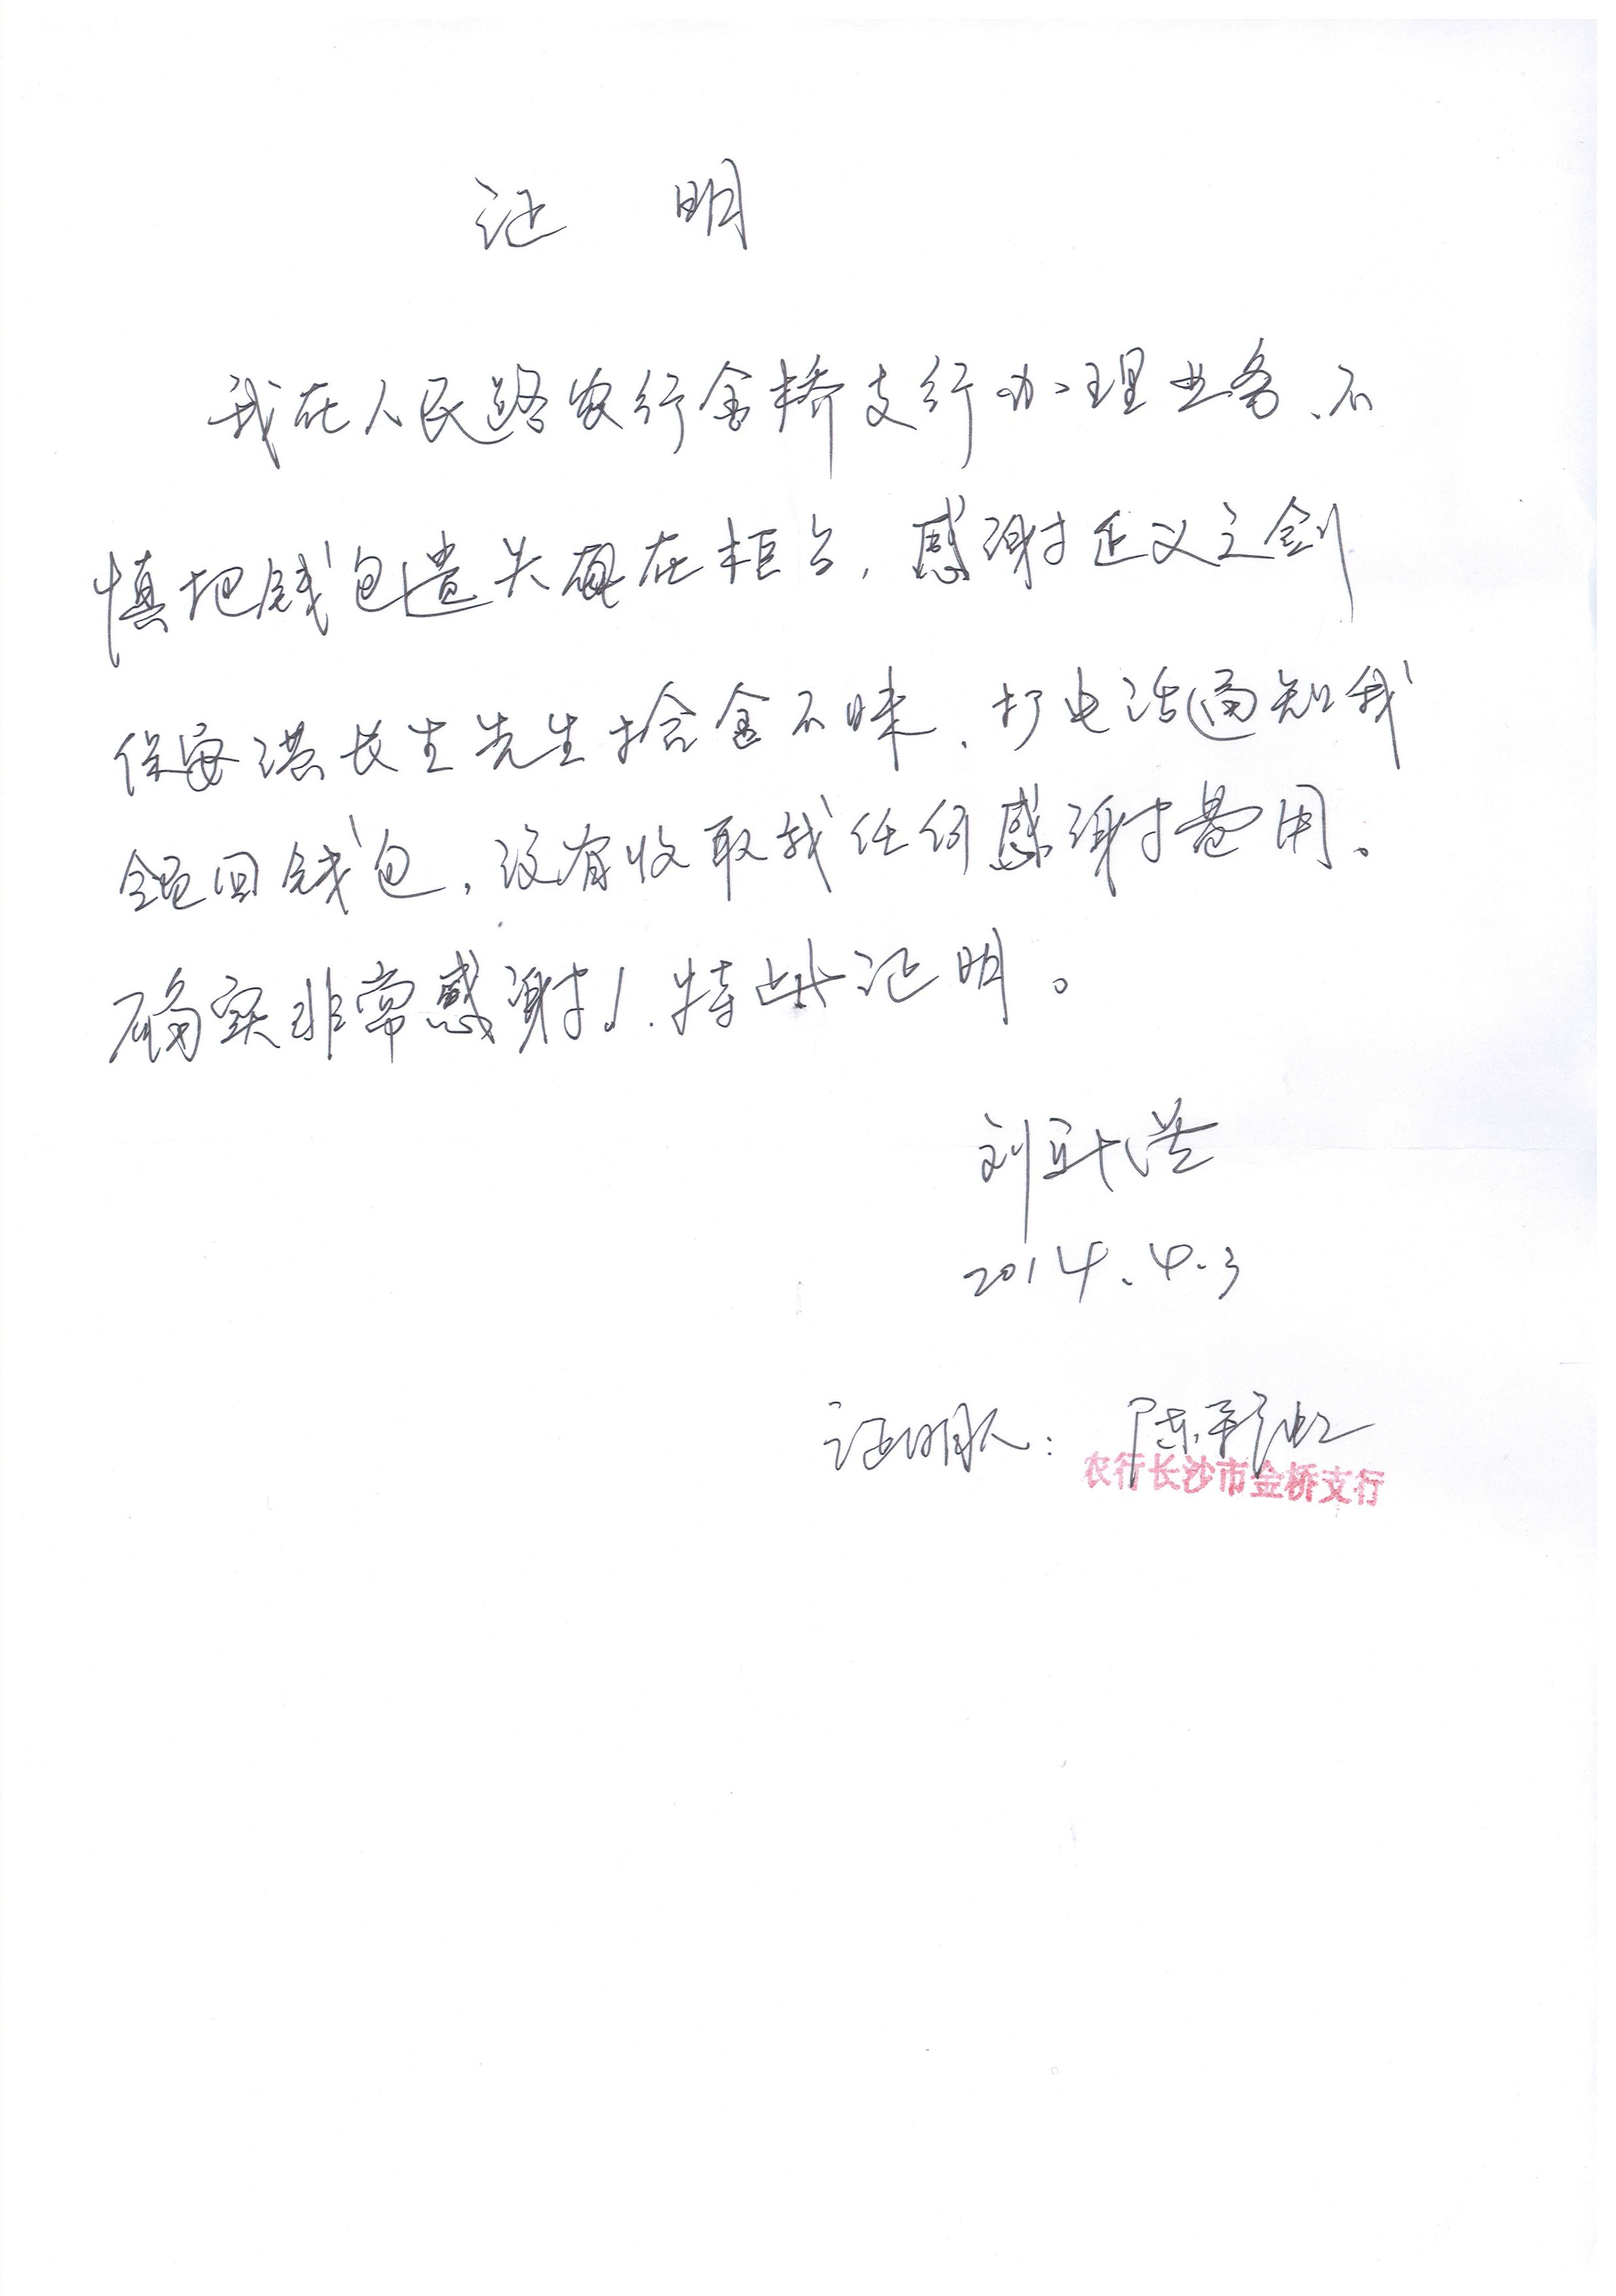 证 明
我在人民路农行金桥支行办理业务、不
慎把钱包遗失在柜台,感谢正义之剑
保安洪长生先生拾金不昧、打电话通知我
领回钱包,没有收取我任何感谢费用。
确实非常感谢!特此证明。
刘
2014.4.3
证明人:陈彩虹
农行长沙市金桥支行